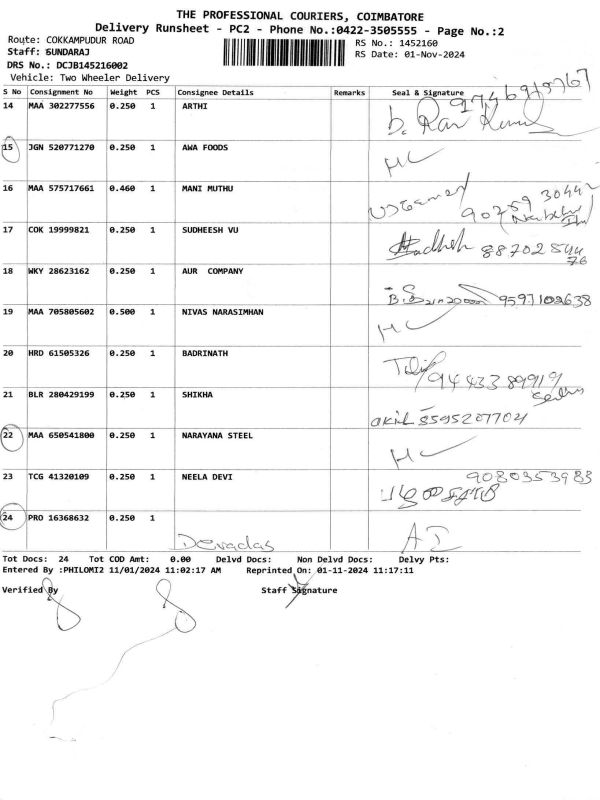 THE PROFESSIONAL COURIERS, COIMBATORE
Delivery Runsheet - PC2 - Phone No.:0422-3505555 - Page No.:2
Route: COKKAMPUDUR ROAD
RS No.: 1452160
Staff: SUNDARAJ
RS Date: 01-Nov-2024
DRS No.: DCJB145216002
Vehicle: Two Wheeler Delivery
S No Consignment No Weight PCS Consignee Details Remarks Seal & Signature
14 MAA 302277556 0.250 1 ARTHI
15 JGN 520771270 0.250 1 AWA FOODS
16 MAA 575717661 0.460 1 MANI MUTHU
17 COK 19999821 0.250 1 SUDHEESH VU
88702544
76
18 WKY 28623162 0.250 1 AUR COMPANY
9597102638
19 MAA 705805602 0.500 1 NIVAS NARASIMHAN
20 HRD 61505326 0.250 1 BADRINATH
9443389919
21 BLR 280429199 0.250 1 SHIKHA
akil 8595207704
22 MAA 650541800 0.250 1 NARAYANA STEEL
23 TCG 41320109 0.250 1 NEELA DEVI 9080353983
24 PRO 16368632 0.250 1
Devadas
Tot Docs: 24 Tot COD Amt: 0.00 Delvd Docs: Non Delvd Docs: Delvy Pts:
Entered By :PHILOMI2 11/01/2024 11:02:17 AM Reprinted On: 01-11-2024 11:17:11
Verified By Staff Signature